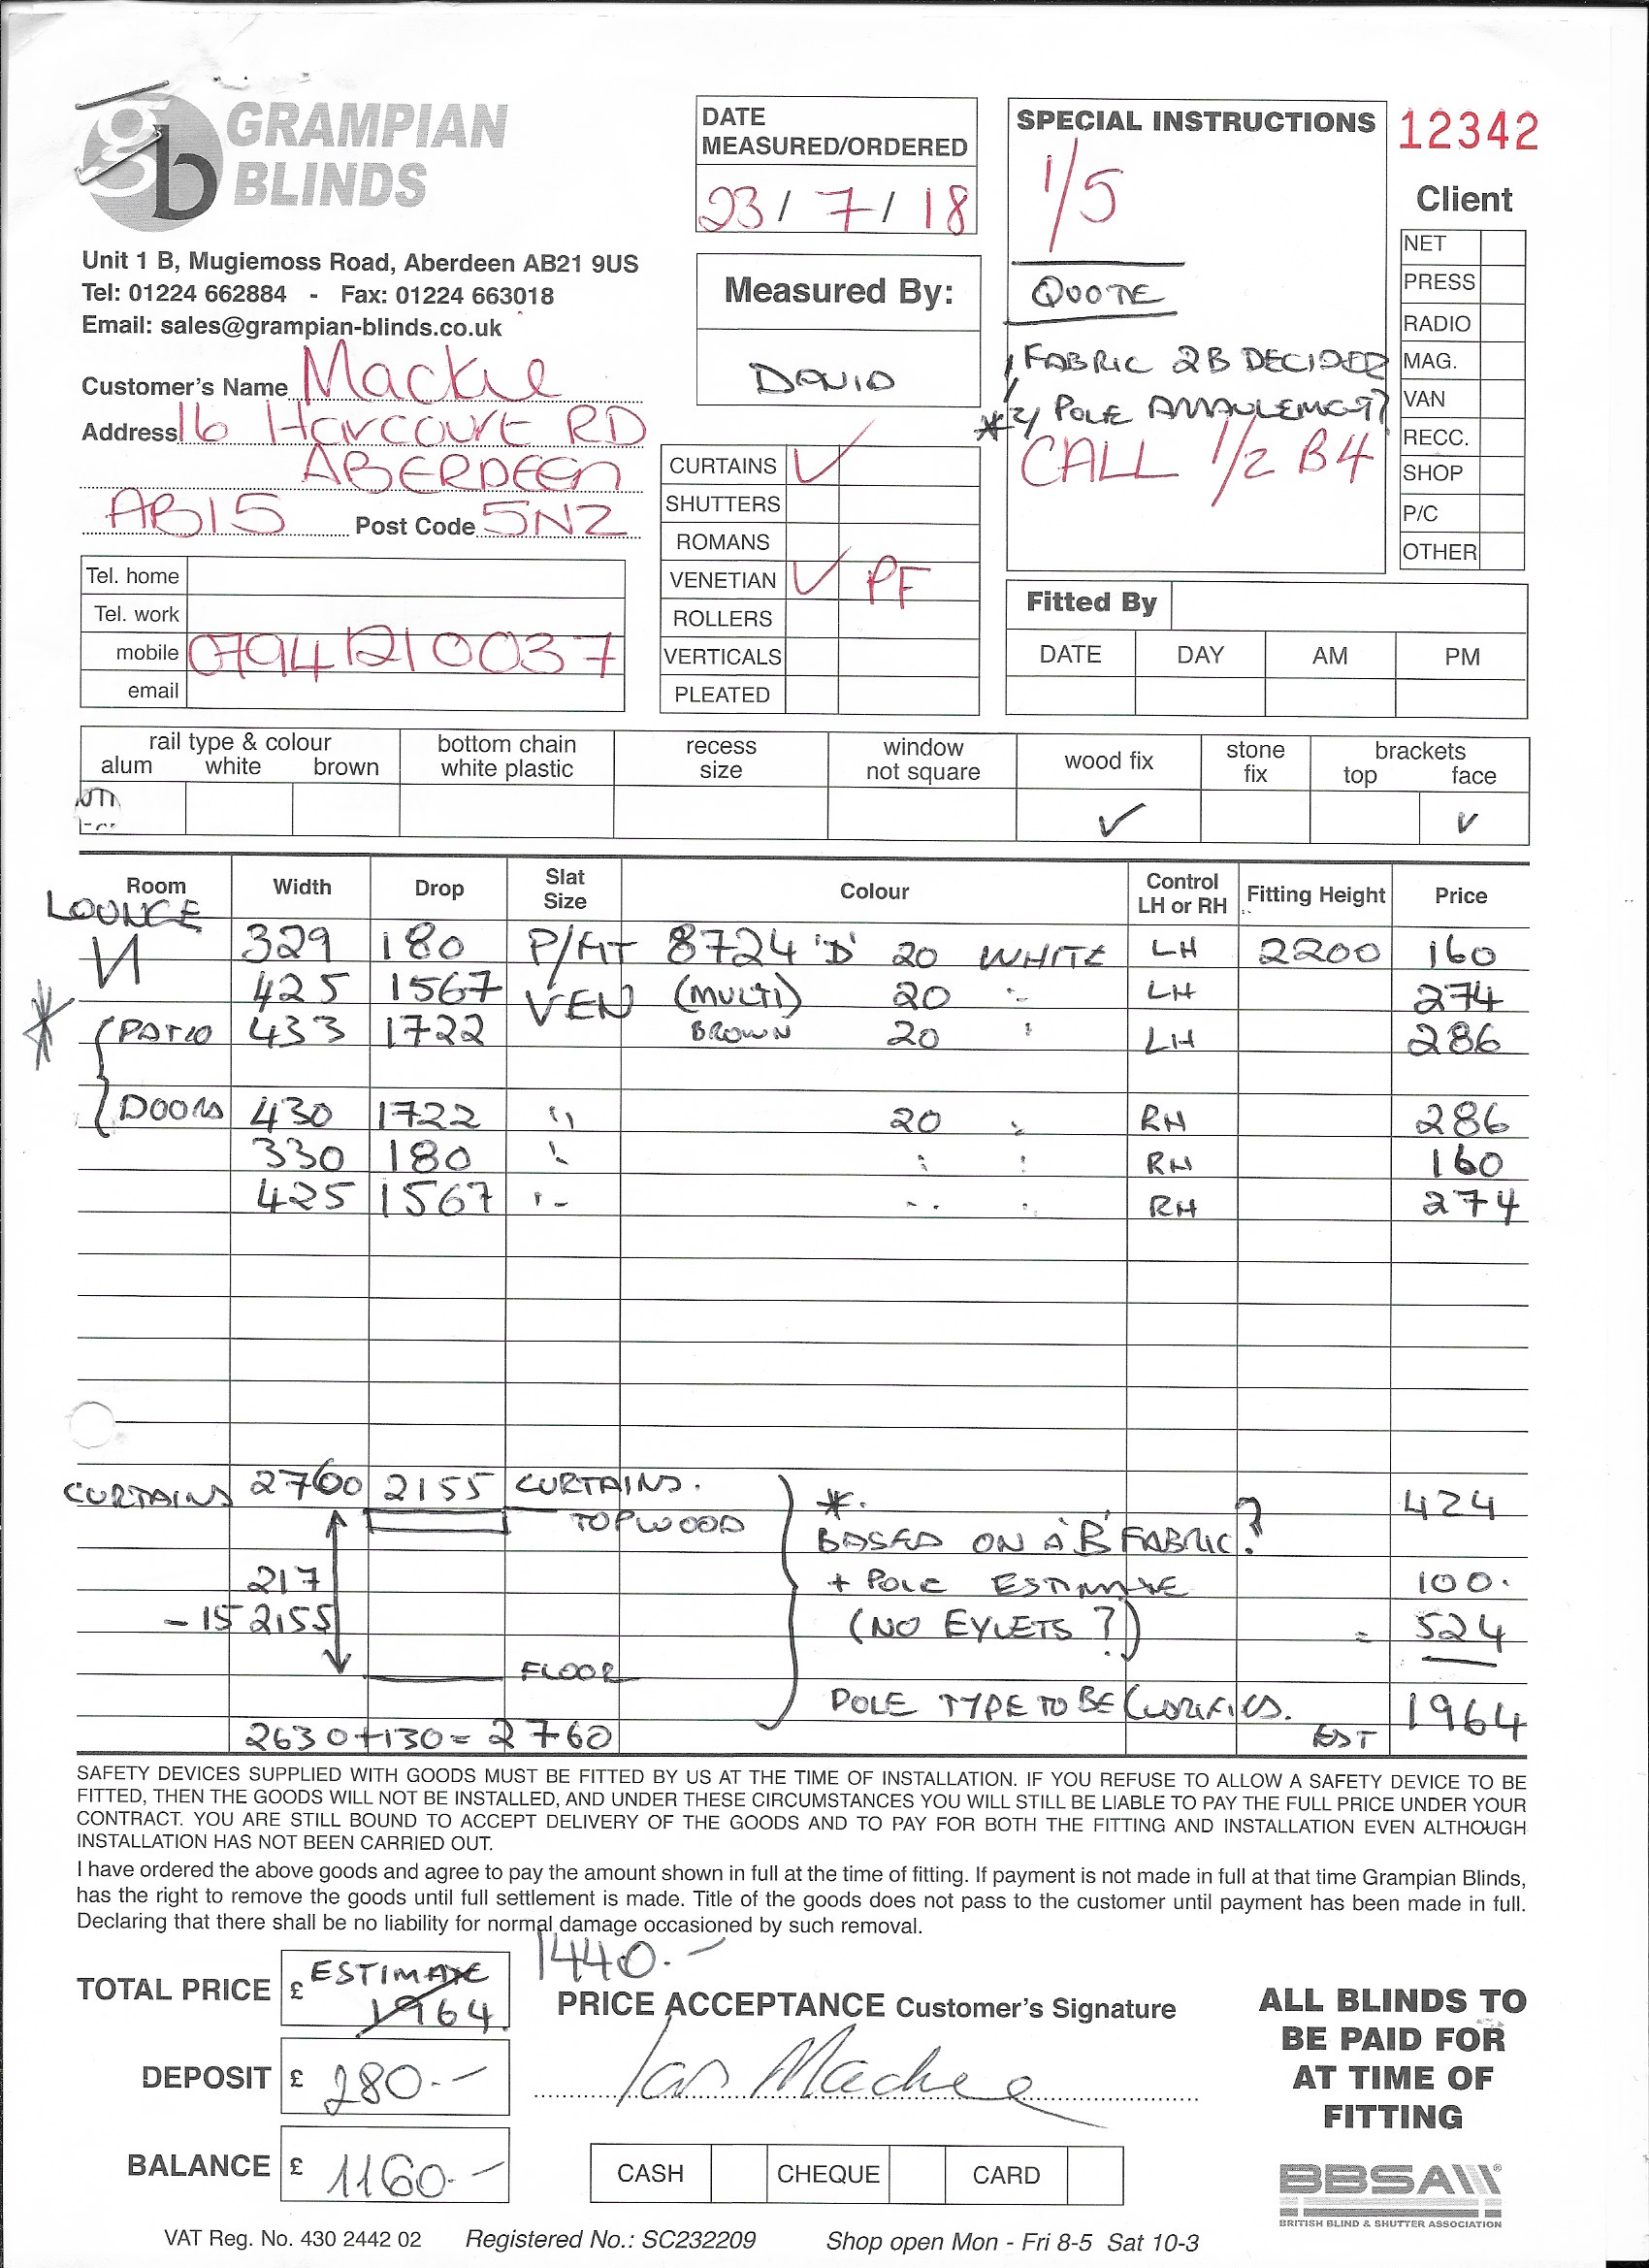 GRAMPIAN
BLINDS
gb
Unit 1 B, Mugiemoss Road, Aberdeen AB21 9US
Tel: 01224 662884 - Fax: 01224 663018
Email: sales@grampian-blinds.co.uk
Customer's Name Mackie
Address 16 Harcourt RD
ABERDEEN
AB15 Post Code 5NZ
Tel. home
Tel. work
mobile 07941210037
email
DATE
MEASURED/ORDERED
23/7/18
Measured By:
DAVID
CURTAINS ✓
SHUTTERS
ROMANS
VENETIAN ✓ PF
ROLLERS
VERTICALS
PLEATED
SPECIAL INSTRUCTIONS
1/5
QUOTE
1/ FABRIC 2B DECIDED
* 2/ POLE
CALL 1/2 B4
12342
Client
NET
PRESS
RADIO
MAG.
VAN
RECC.
SHOP
P/C
OTHER
Fitted By
DATE DAY AM PM
rail type & colour bottom chain recess window wood fix stone brackets
alum white brown white plastic size not square fix top face
✓ ✓
Room Width Drop Slat Size Colour Control LH or RH Fitting Height Price
LOUNGE
329 180 P/FIT 8724 'D' 20 WHITE LH 2200 160
425 1567 VEN (MULTI) 20 " LH 274
* PATIO 433 1722 BROWN 20 " LH 286
DOORS 430 1722 " 20 " RH 286
330 180 " " " RH 160
425 1567 " " " RH 274
CURTAINS 2760 2155 CURTAINS. *. 424
TOPWOOD
BASED ON A 'B' FABRIC?
217 + POLE ESTIMATE 100.
- 15 2155 (NO EYLETS ?) = 524
FLOOR
POLE TYPE TO BE
2630+130=2760 EST 1964
SAFETY DEVICES SUPPLIED WITH GOODS MUST BE FITTED BY US AT THE TIME OF INSTALLATION. IF YOU REFUSE TO ALLOW A SAFETY DEVICE TO BE
FITTED, THEN THE GOODS WILL NOT BE INSTALLED, AND UNDER THESE CIRCUMSTANCES YOU WILL STILL BE LIABLE TO PAY THE FULL PRICE UNDER YOUR
CONTRACT. YOU ARE STILL BOUND TO ACCEPT DELIVERY OF THE GOODS AND TO PAY FOR BOTH THE FITTING AND INSTALLATION EVEN ALTHOUGH
INSTALLATION HAS NOT BEEN CARRIED OUT.
I have ordered the above goods and agree to pay the amount shown in full at the time of fitting. If payment is not made in full at that time Grampian Blinds,
has the right to remove the goods until full settlement is made. Title of the goods does not pass to the customer until payment has been made in full.
Declaring that there shall be no liability for normal damage occasioned by such removal.
1440.-
TOTAL PRICE £ ESTIMATE
1964.
PRICE ACCEPTANCE Customer's Signature
Ian Mackie
DEPOSIT £ 280.-
BALANCE £ 1160.-
CASH CHEQUE CARD
ALL BLINDS TO
BE PAID FOR
AT TIME OF
FITTING
BBSA
BRITISH BLIND & SHUTTER ASSOCIATION
VAT Reg. No. 430 2442 02 Registered No.: SC232209 Shop open Mon - Fri 8-5 Sat 10-3